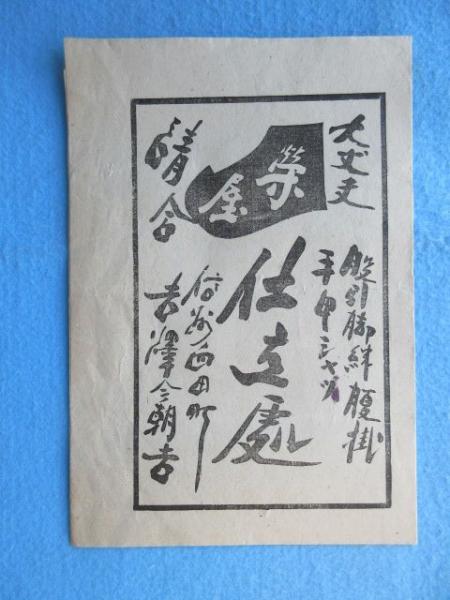 大丈夫
股引脚絆腹掛
手甲シャツ
榮屋
仕立處
請合
信州
吉澤今朝吉